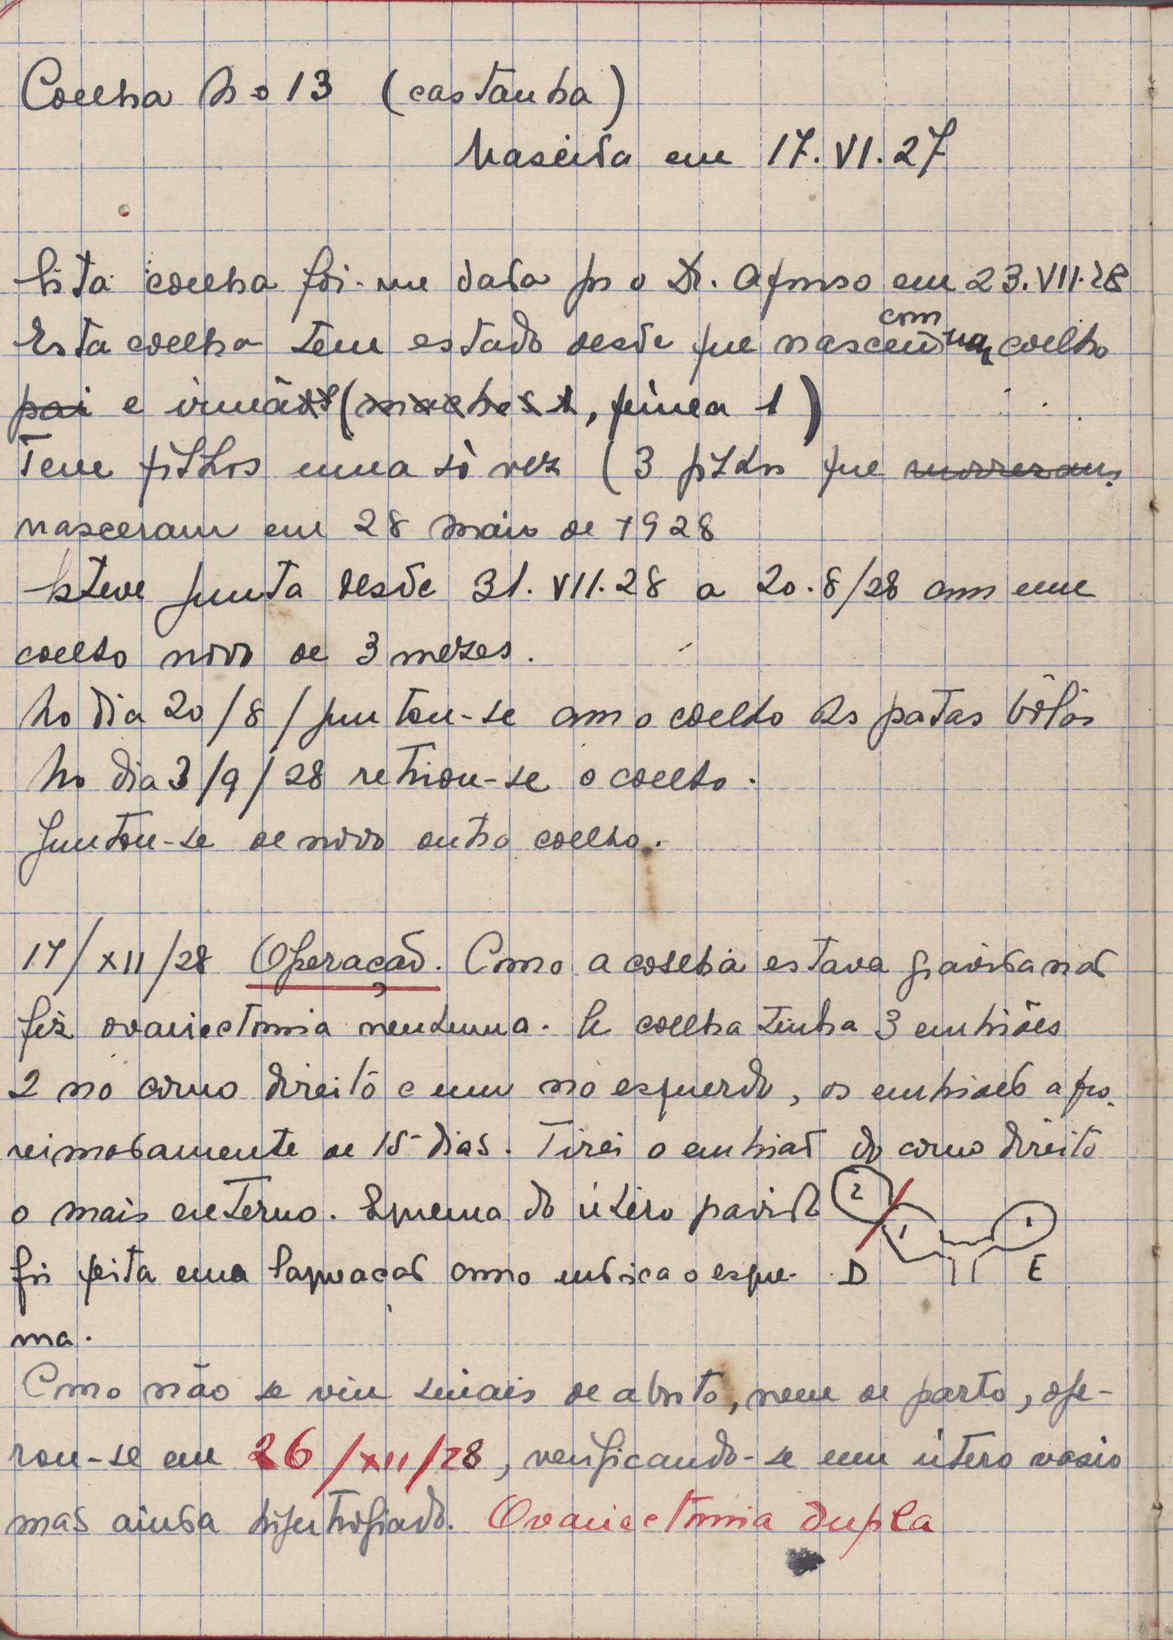 Coelha no 13 (castanha)
Nascida em 17.VI.27
Esta coelha foi-me dada po o Dr. Afonso em 23.VII.28
Esta coelha tem estado desde que nasceu com coelho
pai e irmãos (machos 1, fémea 1)
Teve filhos uma só vez (3 filhos que morreram,
nasceram em 28 maio de 1928
Esteve junta desde 31.VII.28 a 20.8/28 com um
coelho novo de 3 mezes.
No dia 20/8/ juntou-se com o coelho às patas
No dia 3/9/28 retirou-se o coelho.
Juntou-se de novo outro coelho.
17/XII/28 Operação. Como a coelha estava gravida não
fiz ovariectomia nenhuma. A coelha tinha 3 embriões
2 no corno direito e um no esquerdo, os embriões apro-
ximadamente de 15 dias. Tirei o embrião do corno direito
o mais externo. Esquema do útero gravido
2
1
1
foi feita uma laqueação como indica o esque-
D
E
ma.
Como não se viu sinais de aborto, nem de parto, ope-
rou-se em 26/XII/28, verificando-se um útero vasio
mas ainda hipertrofiado. Ovariectomia dupla